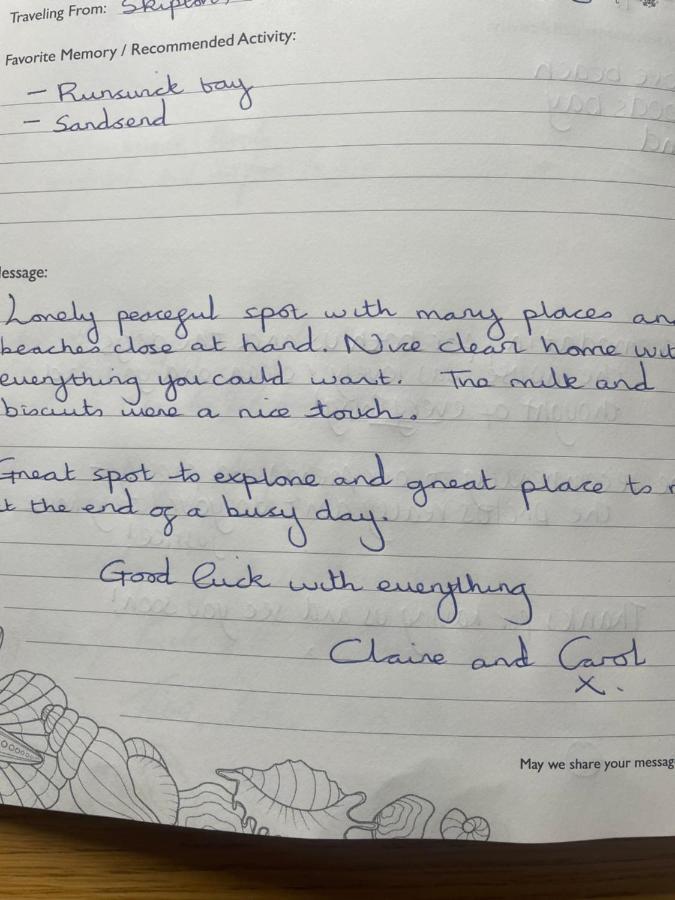 Traveling From: Skipton,
Favorite Memory / Recommended Activity:
– Runswick bay
– Sandsend
essage:
Lonely peaceful spot with many places an
beaches close at hand. Nice clean home wit
everything you could want. The milk and
biscuits were a nice touch.
Great spot to explore and great place to
t the end of a busy day.
Good luck with everything
Claire and Carol
x.
May we share your messag